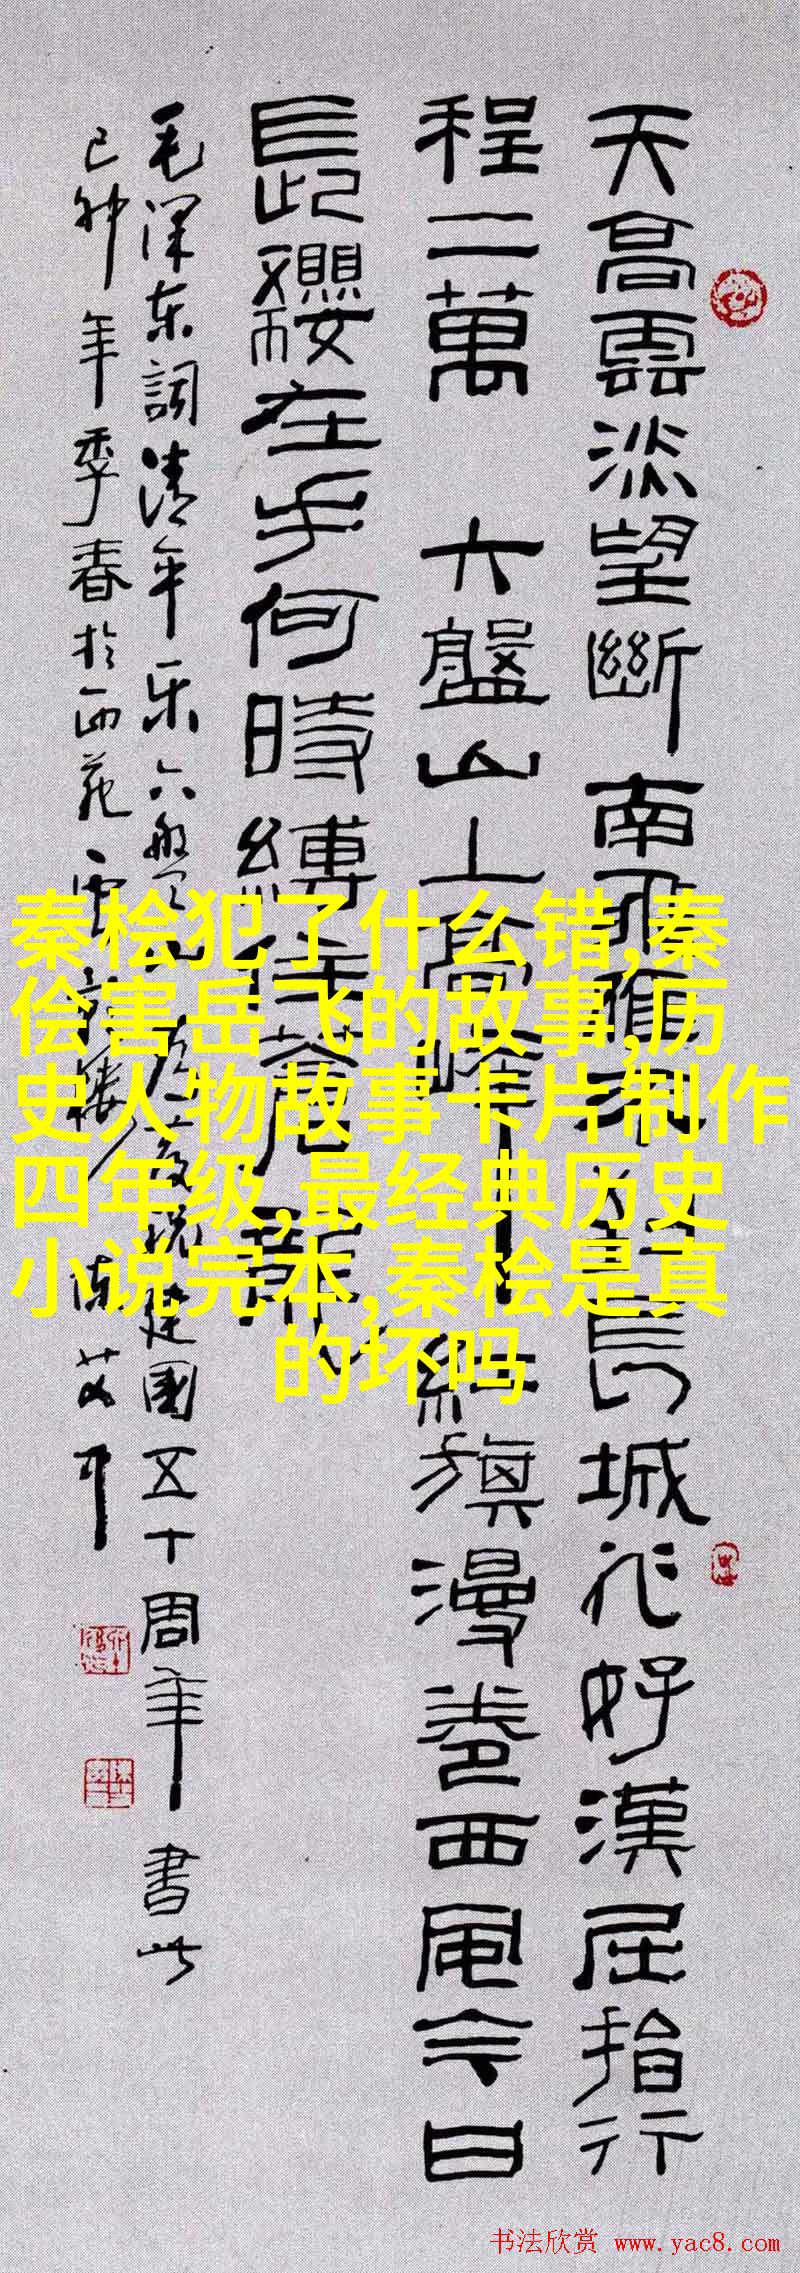 天高雲淡望斷南飛雁不到長城非好漢屈指行
程二萬 六盤山上高峰紅旗漫卷西風今日
長纓在手何時縛住蒼龍
毛澤东詞清平乐六盤山為慶祝建國五十周年書此
己卯年季春於西苑
秦桧犯了什么错,秦
侩害岳飞的故事,历
史人物故事卡片制作
四年级,最经典历史
小说完本,秦桧是真
的坏吗
书法欣赏 www.yac8.com